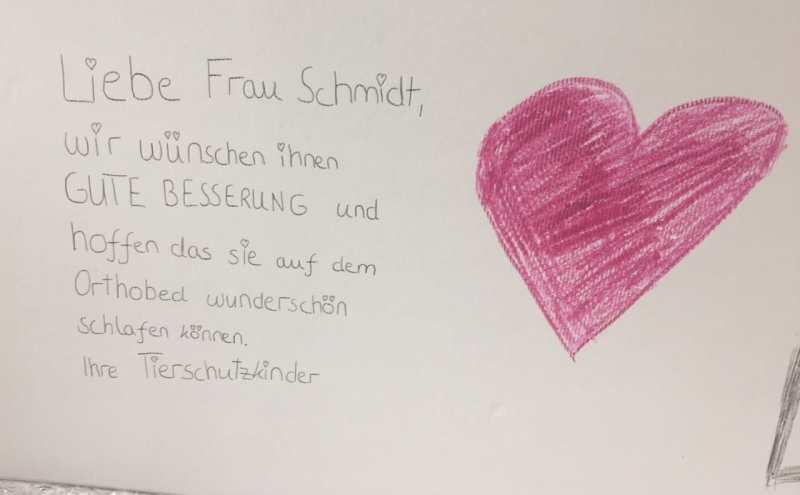 Liebe Frau Schmidt,
wir wünschen ihnen
GUTE BESSERUNG und
hoffen das sie auf dem
Orthobed wunderschön
schlafen können.
Ihre Tierschutzkinder